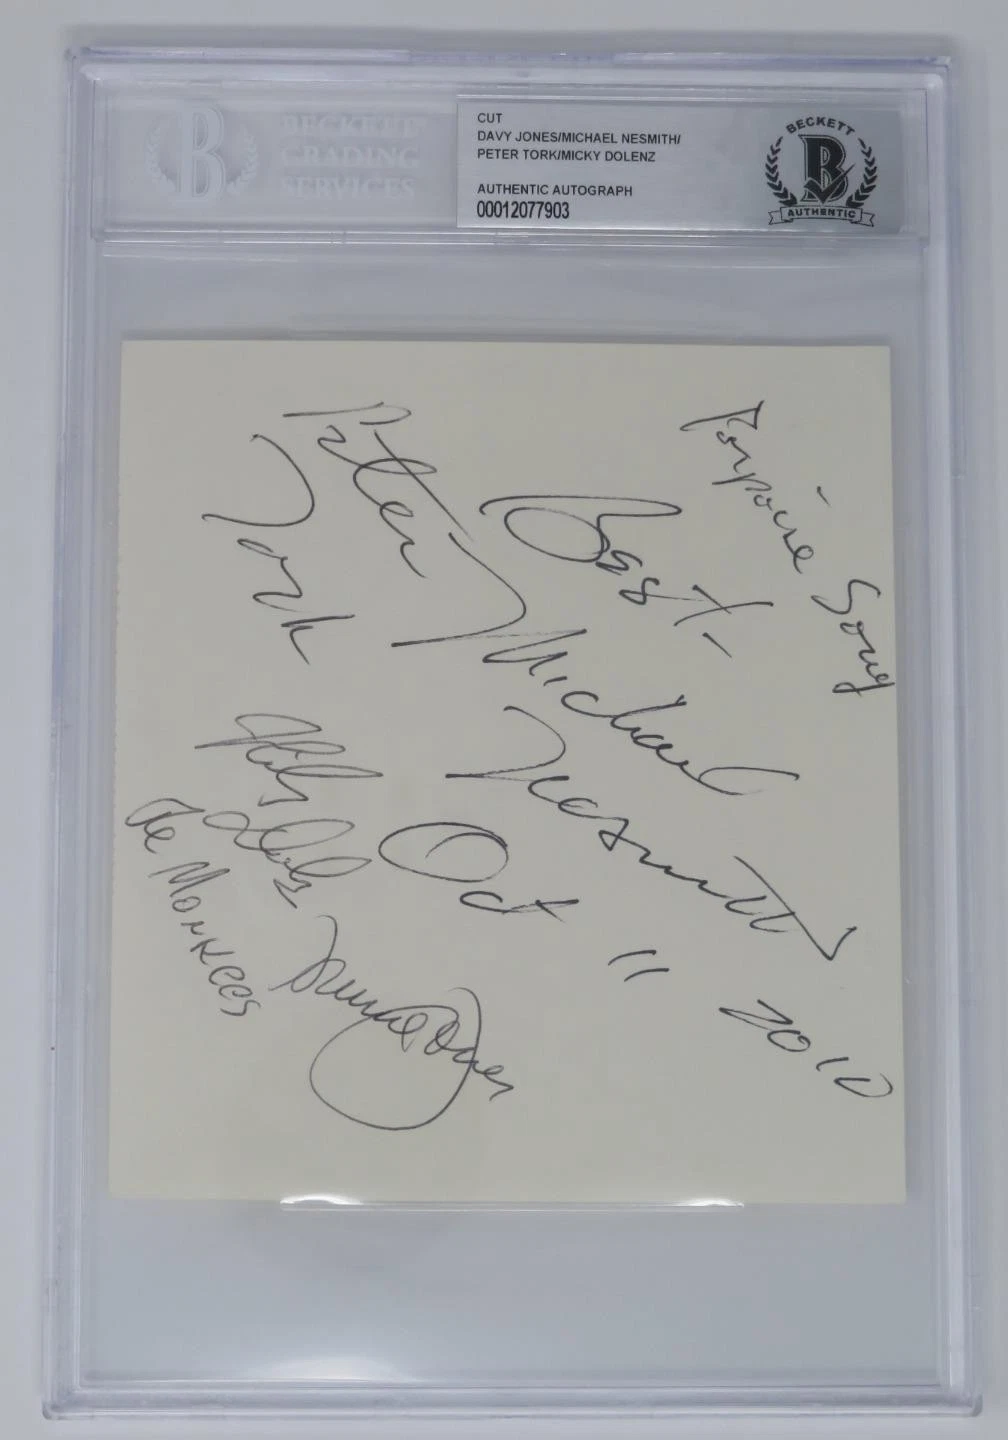 BECKETT
GRADING
SERVICES
B
CUT
DAVY JONES/MICHAEL NESMITH/
PETER TORK/MICKY DOLENZ
AUTHENTIC AUTOGRAPH
00012077903
BECKETT
B
AUTHENTIC
Porpoise Song
Peter
Tork
Best-
Michael
Nesmith
Oct 11 2010
The Monkees
Jones